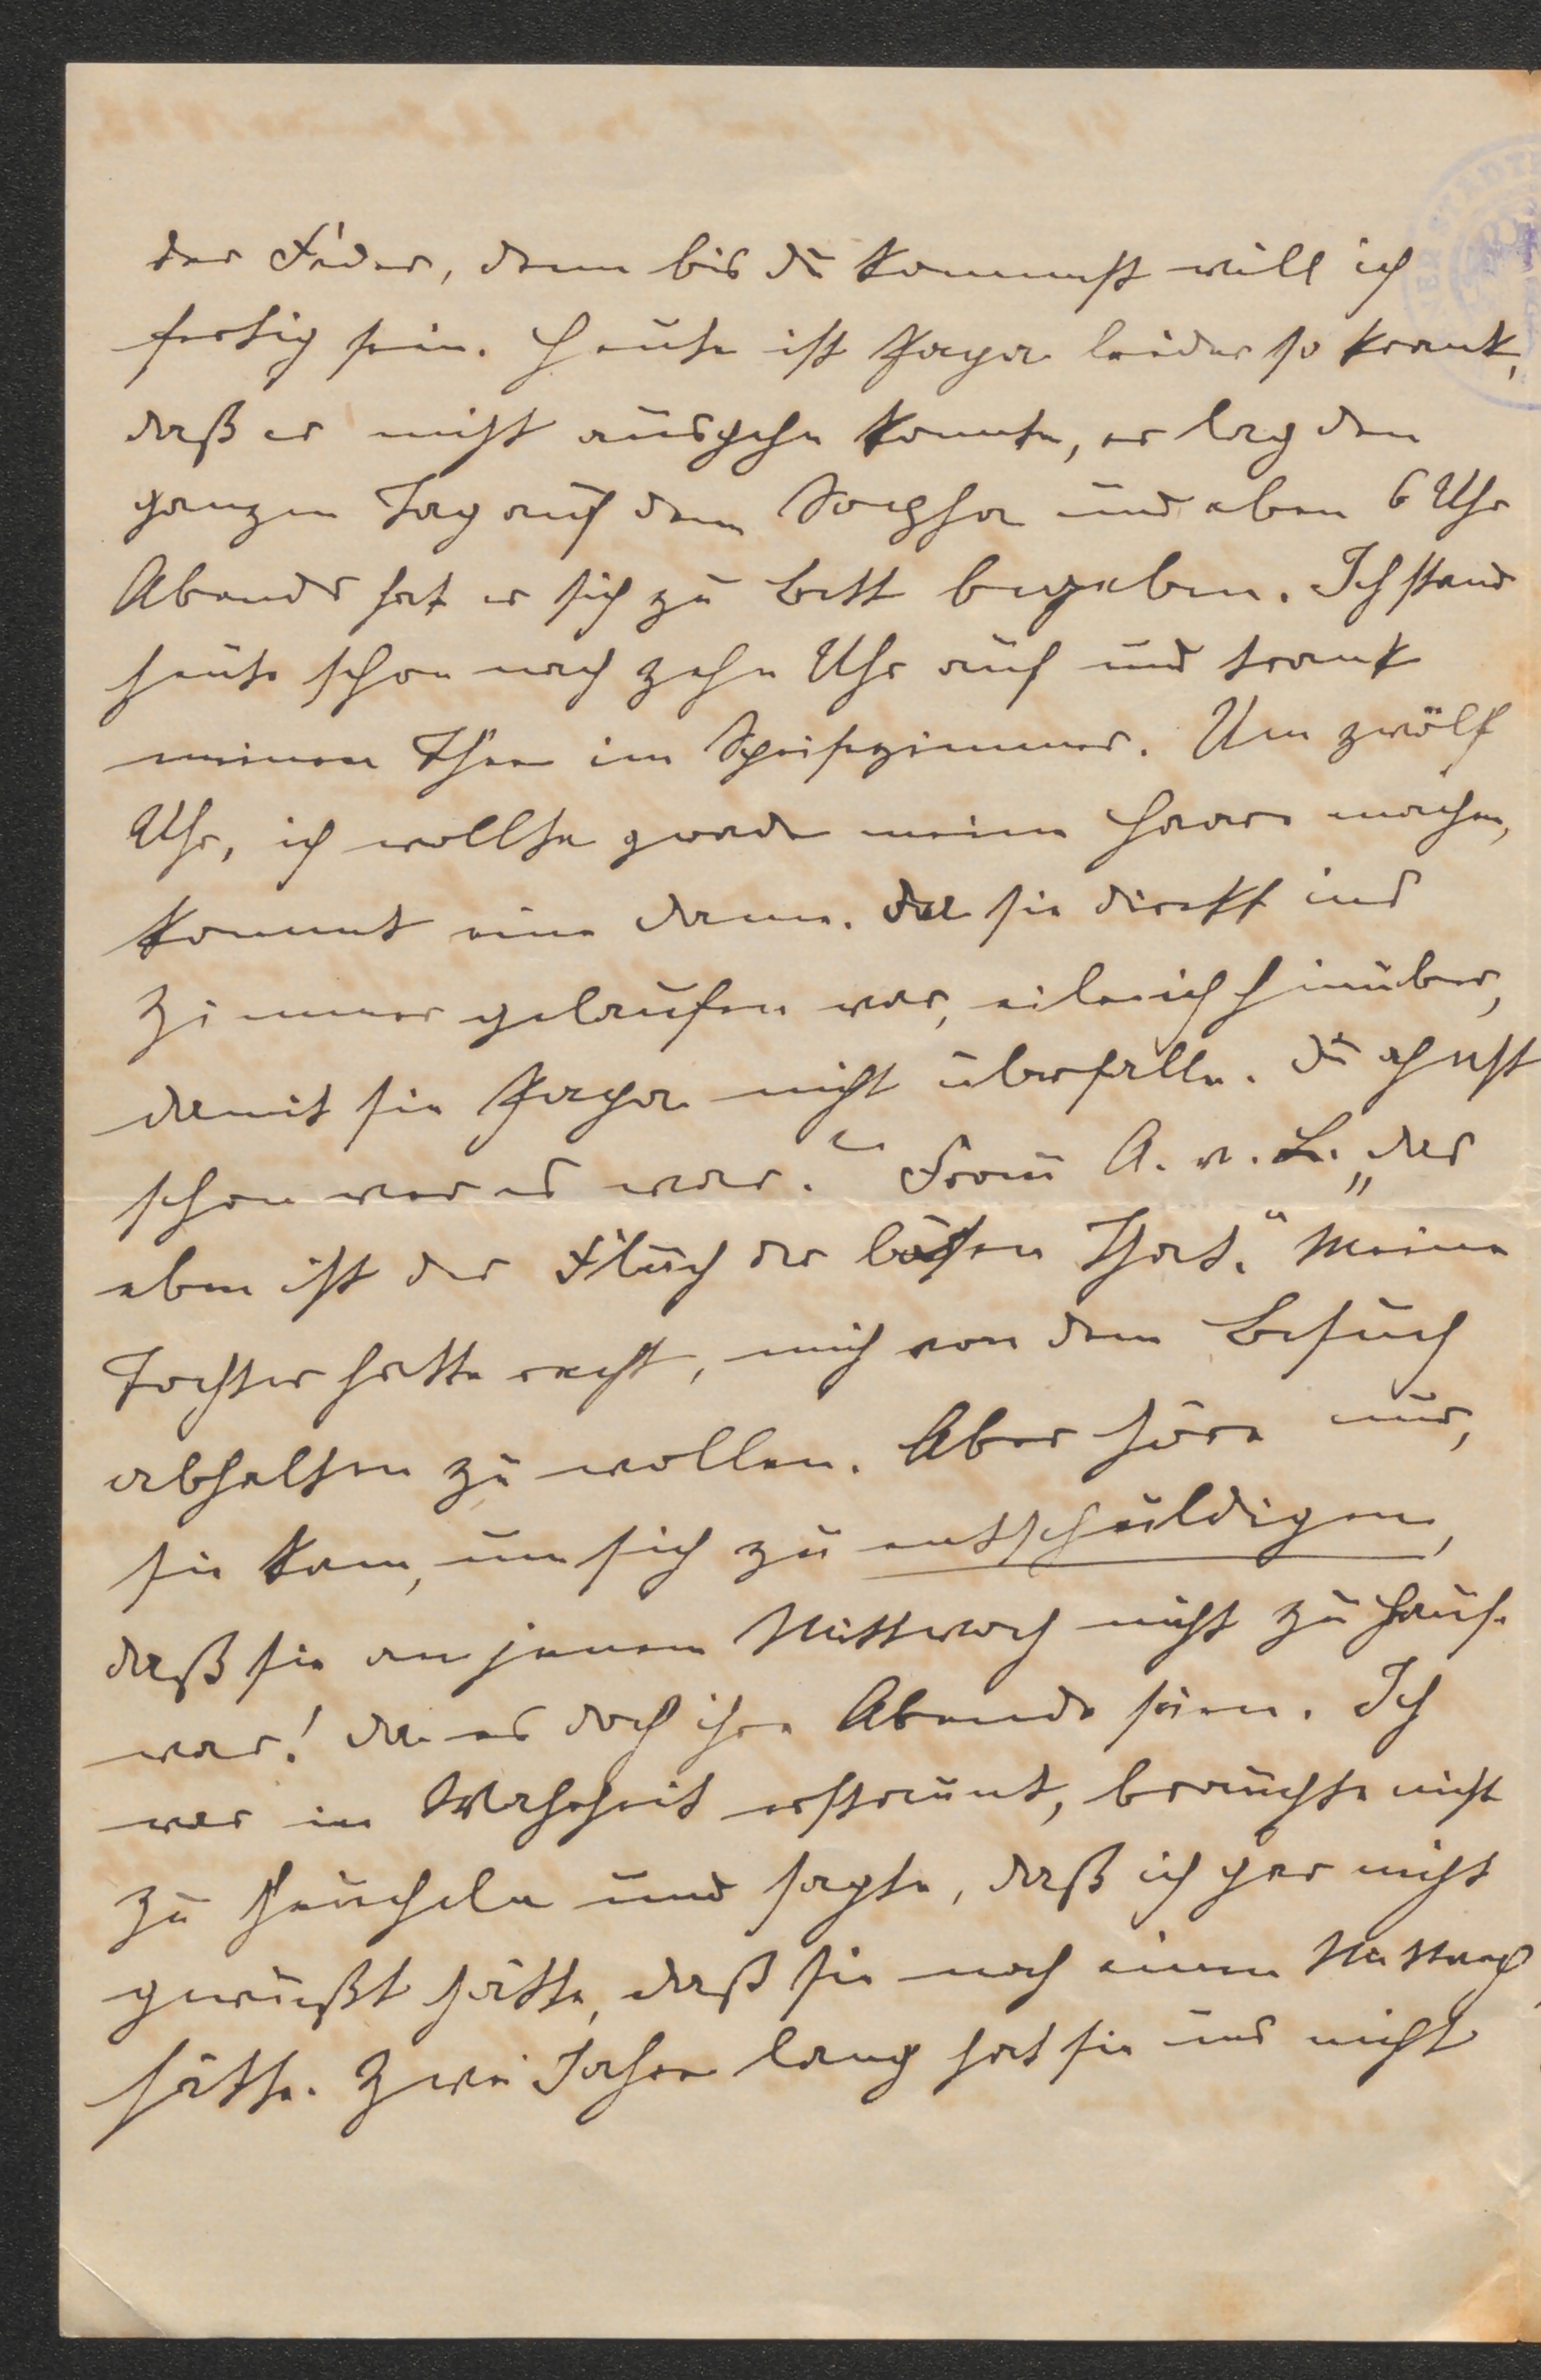 der Feder, denn bis du kommst will ich
fertig sein. Heute ist Papa leider so krank,
daß er nicht ausgehn konnte, er lag den
ganzen Tag auf dem Sopha und eben 6 Uhr
Abends hat er sich zu Bett begeben. Ich stand
heute schon nach zehn Uhr auf und trank
meinen Thee im Speisezimmer. Um zwölf
Uhr, ich wollte grade meine Haare machen,
kommt eine Dame. Da sie direkt ins
Zimmer gelaufen war, eile ich hinüber,
damit sie Papa nicht überfalle. Du ahnst
schon wer es war. Frau A. v. L. „das
eben ist der Fluch der bösen That.“ Meine
Tochter hatte recht, mich von dem Besuch
abhalten zu wollen. Aber höre nur,
sie kam, um sich zu entschuldigen,
daß sie an jenem Mittwoch nicht zu Hause
war! da es doch ihre Abende seien. Ich
war in Wahrheit erstaunt, brauchte nicht
zu heucheln und sagte, daß ich gar nicht
gewußt hätte, daß sie noch einen Mittwoch
hätte. Zwei Jahre lang hat sie uns nicht